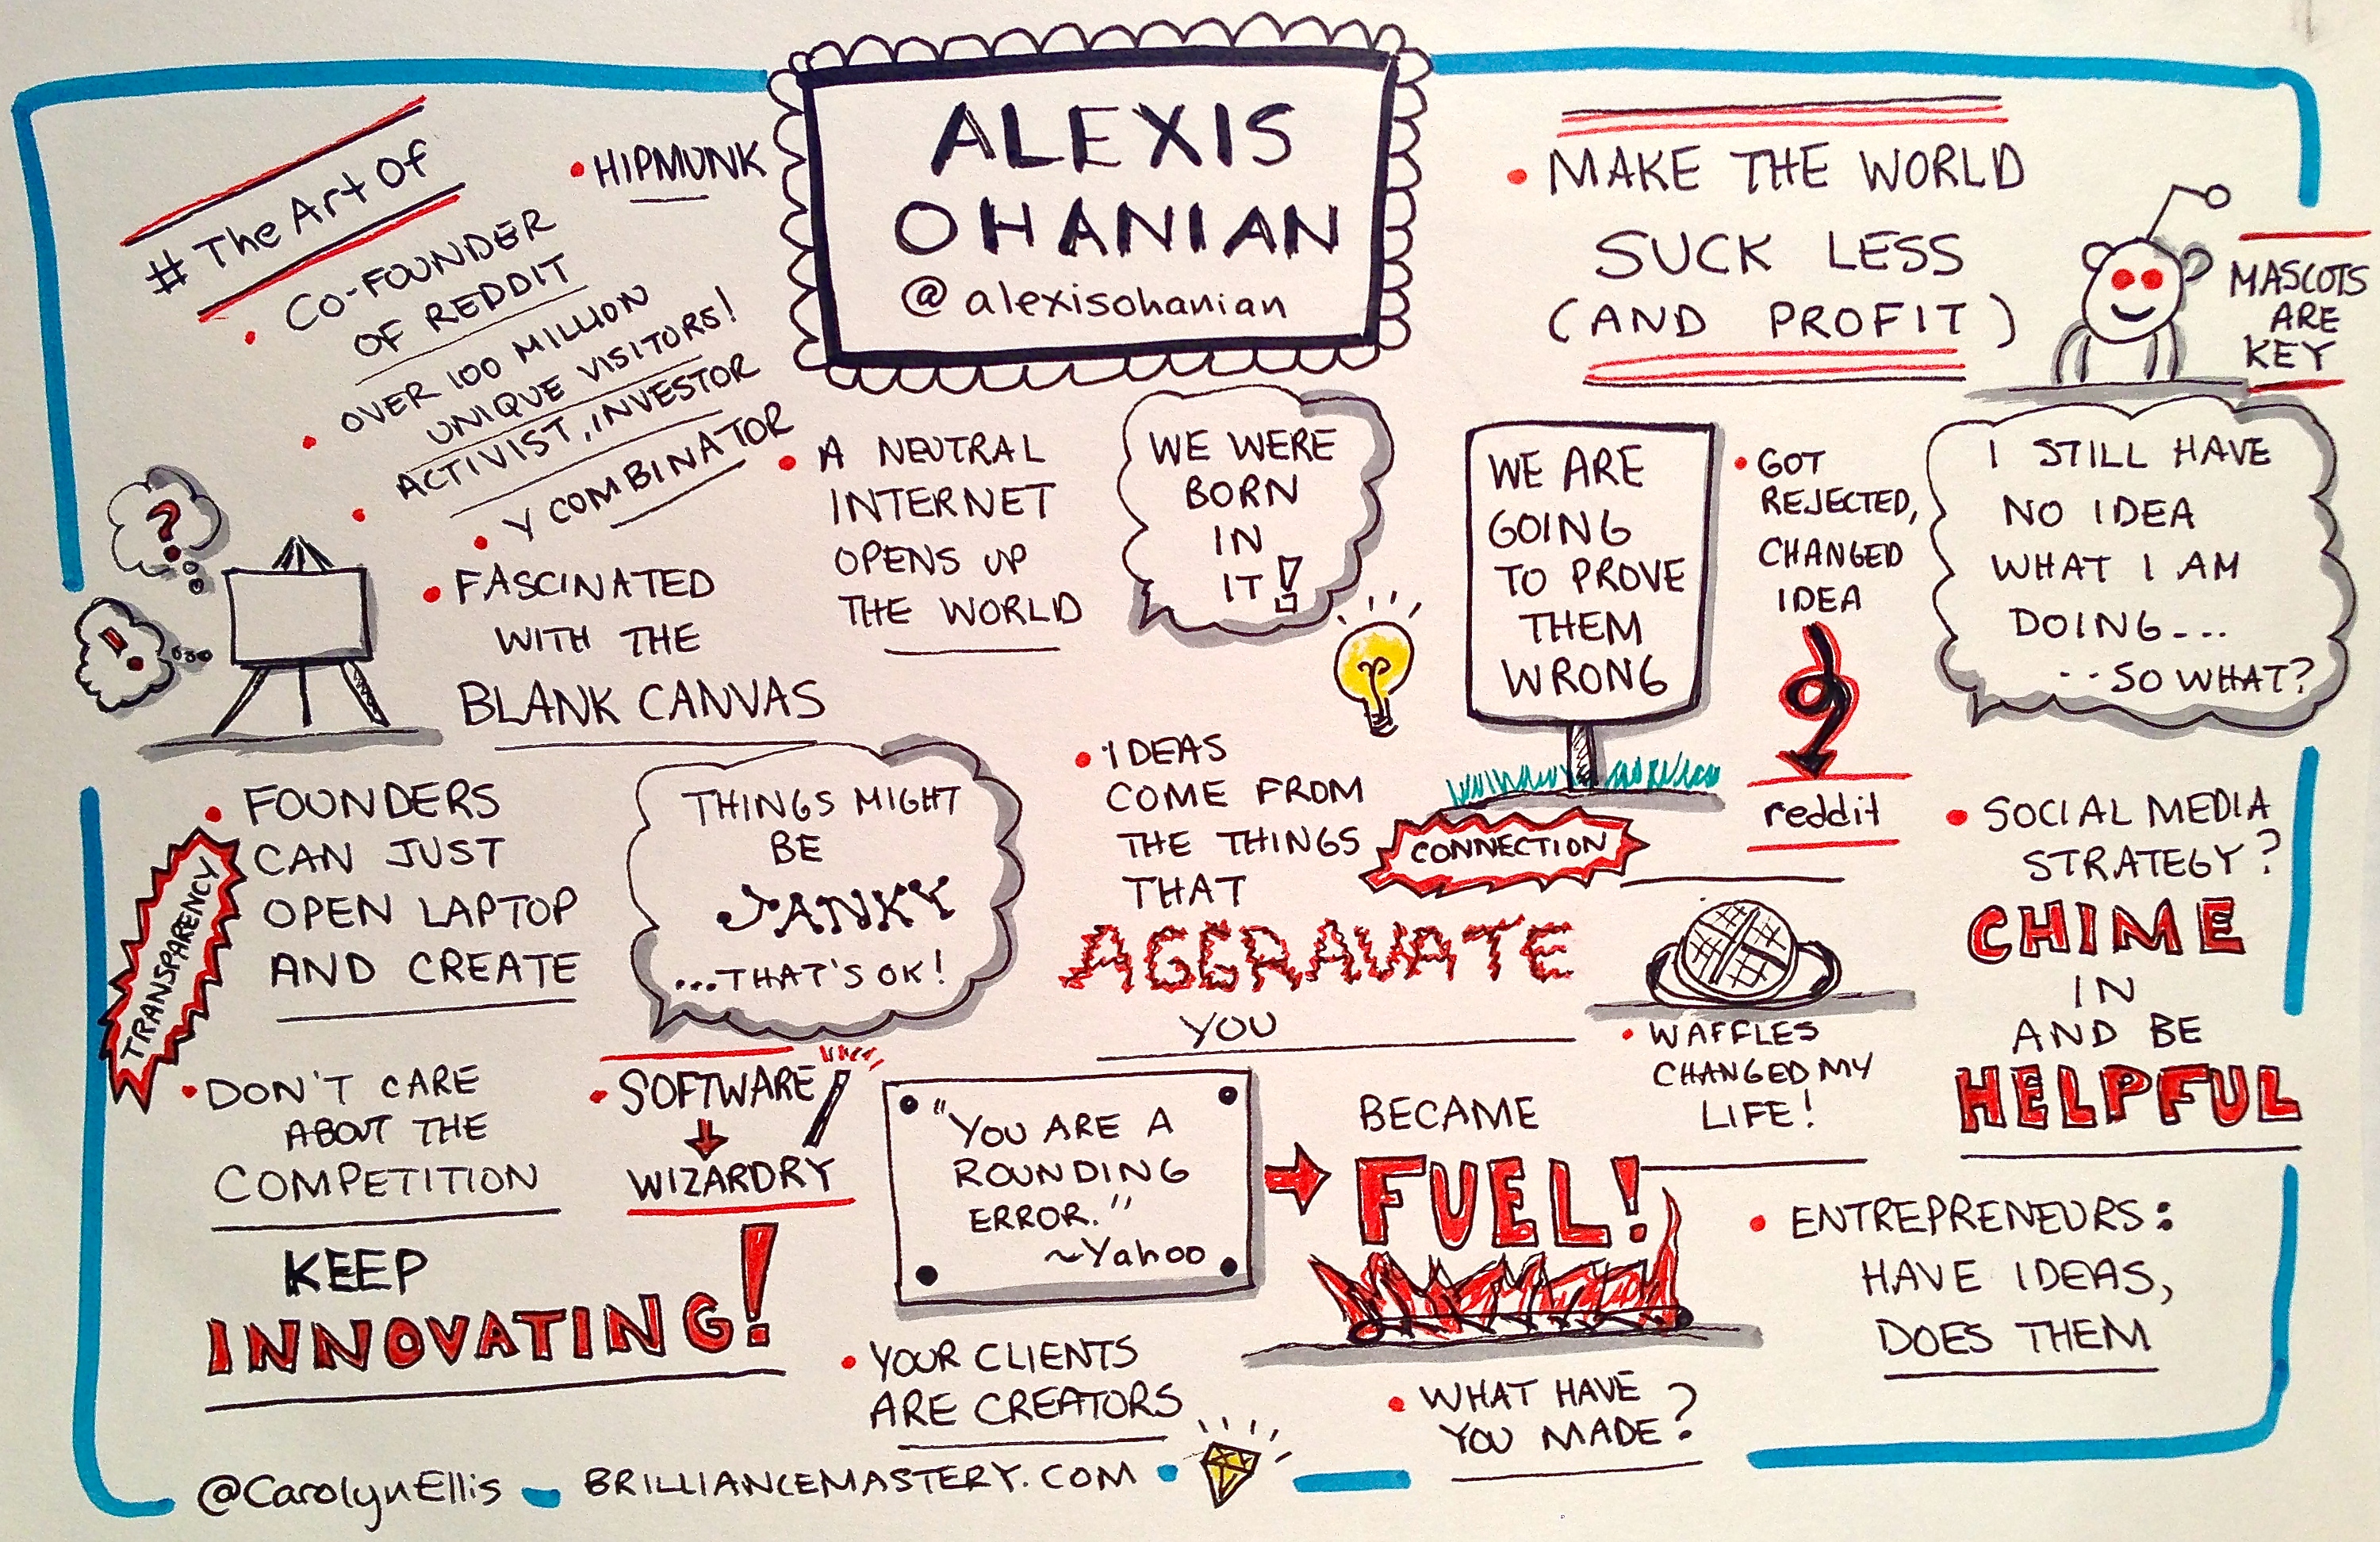 ALEXIS
OHANIAN
@alexisohanian
# The Art Of
• HIPMUNK
• CO-FOUNDER
OF REDDIT
• OVER 100 MILLION
UNIQUE VISITORS!
• ACTIVIST, INVESTOR
• Y COMBINATOR
• FASCINATED
WITH THE
BLANK CANVAS
?
!
• A NEUTRAL
INTERNET
OPENS UP
THE WORLD
WE WERE
BORN
IN
IT!
• MAKE THE WORLD
SUCK LESS
(AND PROFIT)
MASCOTS
ARE
KEY
WE ARE
GOING
TO PROVE
THEM
WRONG
• GOT
REJECTED,
CHANGED
IDEA
reddit
I STILL HAVE
NO IDEA
WHAT I AM
DOING...
..SO WHAT?
• FOUNDERS
CAN JUST
OPEN LAPTOP
AND CREATE
TRANSPARENCY
THINGS MIGHT
BE
JANKY
...THAT'S OK!
• IDEAS
COME FROM
THE THINGS
THAT
AGGRAVATE
YOU
CONNECTION
• WAFFLES
CHANGED MY
LIFE!
• SOCIAL MEDIA
STRATEGY?
CHIME
IN
AND BE
HELPFUL
• DON'T CARE
ABOUT THE
COMPETITION
KEEP
INNOVATING!
• SOFTWARE
WIZARDRY
"YOU ARE A
ROUNDING
ERROR."
~Yahoo
BECAME
FUEL!
• ENTREPRENEURS:
HAVE IDEAS,
DOES THEM
• YOUR CLIENTS
ARE CREATORS
• WHAT HAVE
YOU MADE?
@CarolynEllis
BRILLIANCEMASTERY.COM